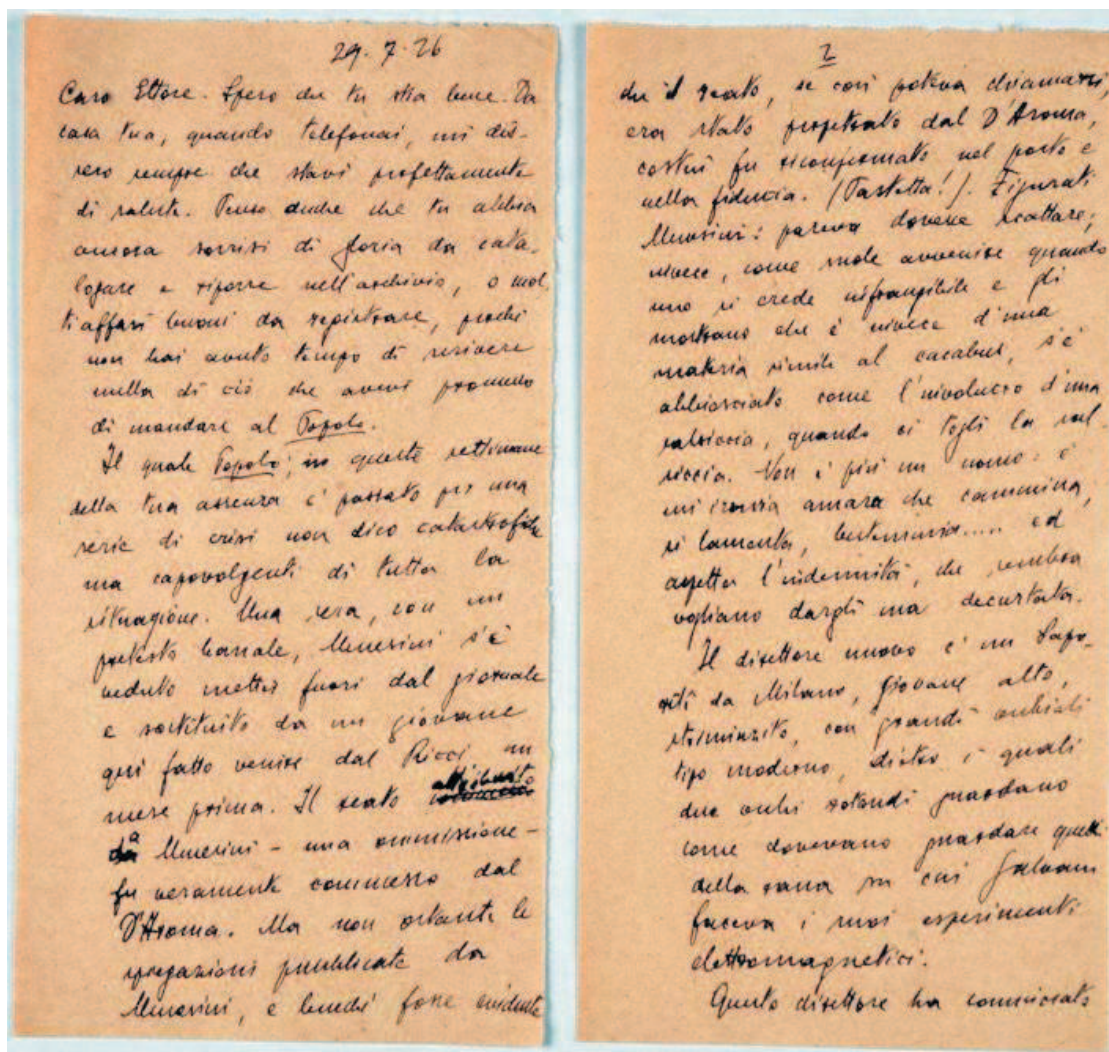 29.7.26
Caro Ettore. Spero che tu stia bene. Da
casa tua, quando telefonai, mi dis-
sero sempre che stavi perfettamente
di salute. Penso anche che tu abbia
ancora sorrisi di gloria da cata-
logare e riporre nell'archivio, o mol
ti affari buoni da registrare, poichè
non hai avuto tempo di scrivere
nulla di ciò che avevi promesso
di mandare al Popolo.
Il quale Popolo, in queste settimane
della tua assenza è passato per una
serie di crisi non dico catastrofiche
ma capovolgenti di tutta la
situazione. Una sera, con un
pretesto banale, Menesini s'è
veduto metter fuori dal giornale
e sostituito da un giovane
qui fatto venire dal Ricci un
mese prima. Il reato attribuito
a Menesini - una ommissione -
fu veramente commesso dal
D'Aroma. Ma non ostante le
spiegazioni pubblicate da
Menesini, e benchè fosse evidente
2
che il reato, se così poteva chiamarsi,
era stato perpetrato dal D'Aroma,
costui fu riconfermato nel posto e
nella fiducia. (Tastetta!). Figurati
Menesini: pareva dovesse scattare;
invece, come suole avvenire quando
uno si crede infrangibile e gli
mostrano che è invece d'una
materia simile al cacabus, s'è
abbiosciato come l'involucro d'una
salsiccia, quando ci togli la sal-
siccia. Non è più un uomo: è
un'ironia amara che cammina,
si lamenta, bestemmia.... ed
aspetta l'indennità, che sembra
vogliano dargli ma decurtata.
Il direttore nuovo è un Sapo-
riti da Milano, giovane alto,
striminzito, con grandi occhiali
tipo moderno, dietro i quali
due occhi rotondi guardano
come dovevano guardare quelli
della rana su cui Galvani
faceva i suoi esperimenti
elettromagnetici.
Questo direttore ha cominciato